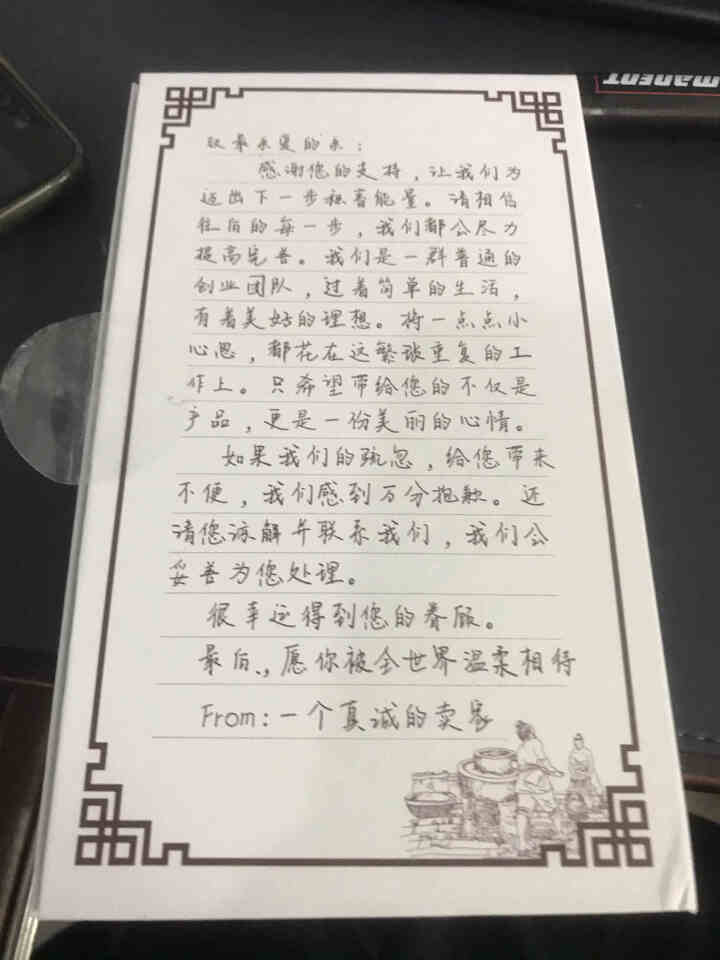 MANENT
致最亲爱的亲：
感谢您的支持，让我们为
迈出下一步积蓄能量。请相信
往后的每一步，我们都会尽力
提高完善。我们是一群普通的
创业团队，过着简单的生活，
有着美好的理想。将一点点小
心思，都花在这繁琐重复的工
作上。只希望带给您的不仅是
产品，更是一份美丽的心情。
如果我们的疏忽，给您带来
不便，我们感到万分抱歉。还
请您谅解并联系我们，我们会
妥善为您处理。
很幸运得到您的眷顾。
最后、，愿你被全世界温柔相待
From：一个真诚的卖家